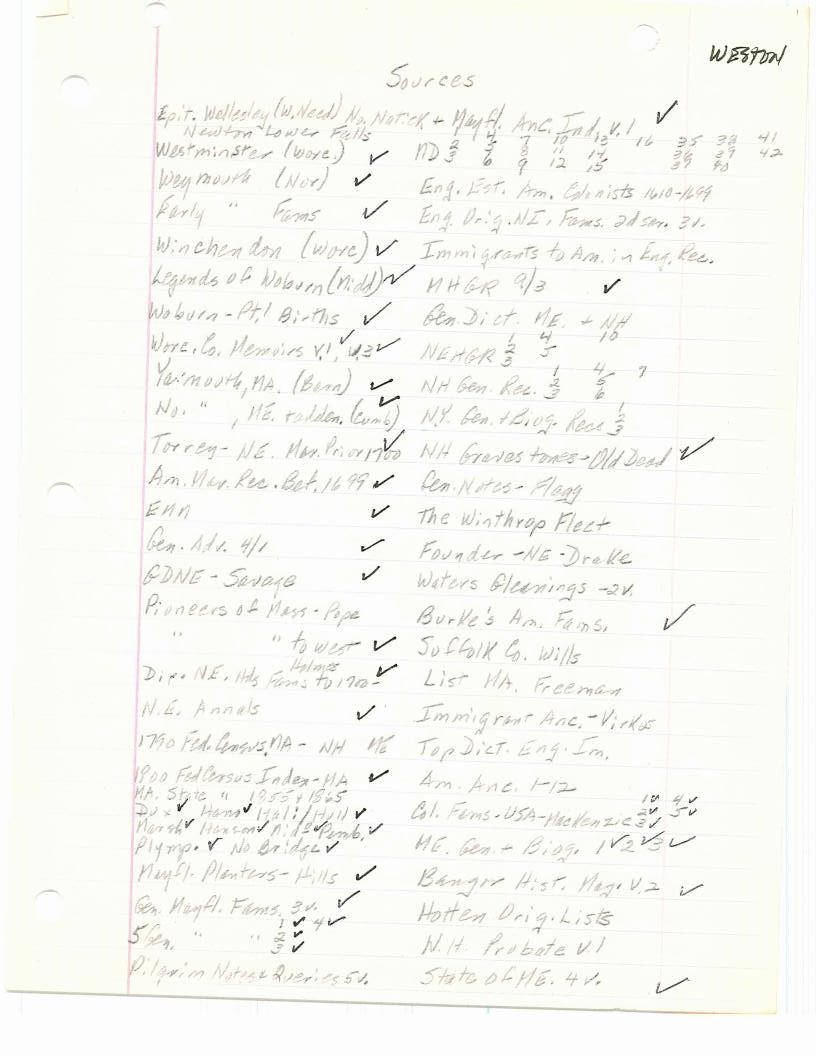 WESTON
Sources
Epit. Wellesley (W. Need) No. Natick + Mayfl. Anc. Ind. v. 1 ✓
Newton Lower Falls
Westminster (Worc.) ✓
Weymouth (Nor) ✓
Early " Fams ✓
Winchendon (Worc) ✓
Legends of Woburn (Midd) ✓
Woburn - Pt. 1 Births ✓
Worc. Co. Memoirs V.1 ✓, V.3 ✓
Yarmouth, MA. (Barn) ✓
No. " , ME. + adden. (Cumb) ✓
Torrey - NE. Mar. Prior 1700 ✓
Am. Mar. Rec. Bef. 1699 ✓
EMM ✓
Gen. Adv. 4/1 ✓
GDNE - Savage ✓
Pioneers of Mass - Pope
" " to West ✓
Holmes
Dir. N.E. Hds Fams to 1700 - ✓
N.E. Annals ✓
1790 Fed. Census, MA - NH ME
1900 Fed Census Index - MA ✓
MA. State " 1855 + 1865
Dux ✓ Hano ✓ Hali/Hull ✓
Marsh ✓ Hanson ✓ Mid ✓ Pemb. ✓
Plymp. ✓ No Bridge ✓
Mayfl. Planters - Hills ✓
Gen. Mayfl. Fams. 3v. ✓
1 ✓ 4 ✓
5 Gen. " " 2 ✓
3 ✓
Pilgrim Notes & Queries 5v.
2 4 7 10 13 16 35 38 41
MD 3 5 8 11 14 36 39 42
6 9 12 15 37 40
Eng. Est. Am. Colonists 1610-1699
Eng. Orig. NE. Fams. 2d ser. 3v.
Immigrants to Am. in Eng. Rec.
MHGR 9/3 ✓
Gen. Dict. ME. + NH
1 4 10
NEHGR 2 5
3
1 4 7
NH Gen. Rec. 2 5
3 6
1
N.Y. Gen. + Biog. Rec 2
3
NH Gravestones - Old Dead ✓
Gen. Notes - Flagg
The Winthrop Fleet
Founder - NE - Drake
Waters Gleanings - 2v.
Burke's Am. Fams. ✓
Suffolk Co. Wills
List MA. Freeman
Immigrant Anc. - Virkus
Top Dict. Eng. Im.
Am. Anc. 1-12
1 ✓ 4 ✓
Col. Fams - USA - Mackenzie 2 ✓ 5 ✓
3 ✓
ME. Gen. + Biog. 1 ✓ 2 ✓ 3 ✓
Bangor Hist. Mag. V.2 ✓
Hotten Orig. Lists
N.H. Probate V.1
State of ME. 4v. ✓